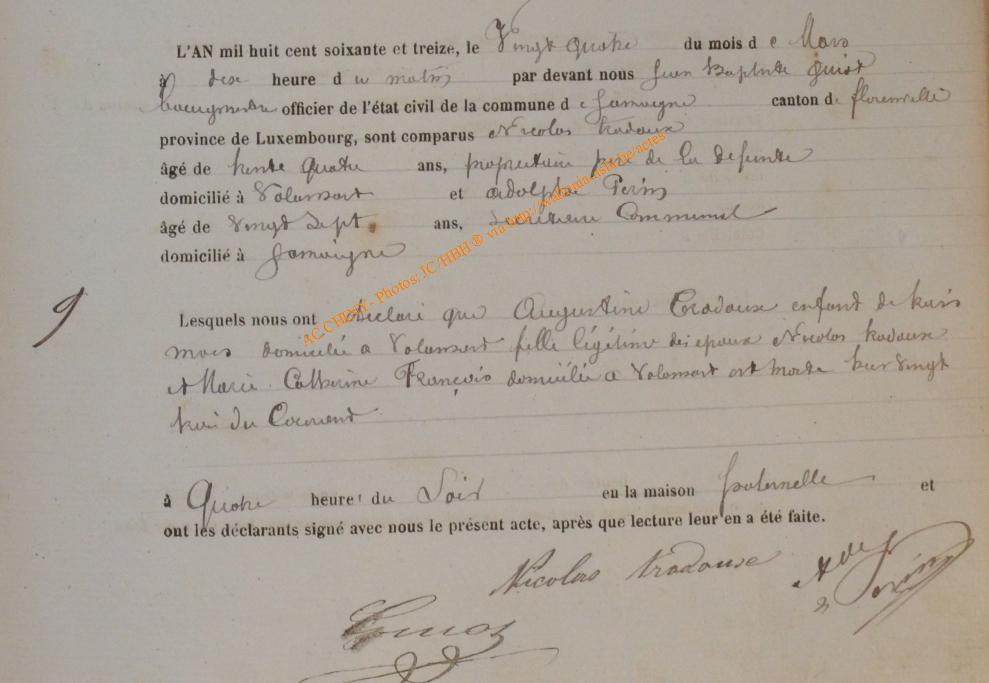 L'AN mil huit cent soixante et treize, le Vingt quatre du mois d e Mars
à dix heure d u matin par devant nous Jean Baptiste
officier de l'état civil de la commune d e Jamoigne canton d e florenville
province de Luxembourg, sont comparus Nicolas tradaux
âgé de trente quatre ans, propriétaire père de la defunte
domicilié à Valansart et adolphe Perin
âgé de Vingt Sept ans, Secretaire Communal
domicilié à Jamoigne
9
Lesquels nous ont declaré que Augustine Tradaux enfant de trois
mois domiciliée a Valansart fille légitime des epoux Nicolas tradaux
et Marie Catherine François domiciliés a Valansart est morte hier vingt
trois du Courant
à Quatre heures du Soir en la maison paternelle et
ont les déclarants signé avec nous le présent acte, après que lecture leur en a été faite.
Nicolas tradaux Ade Perin
AC CHINY - Photos: JC/HBH ® via